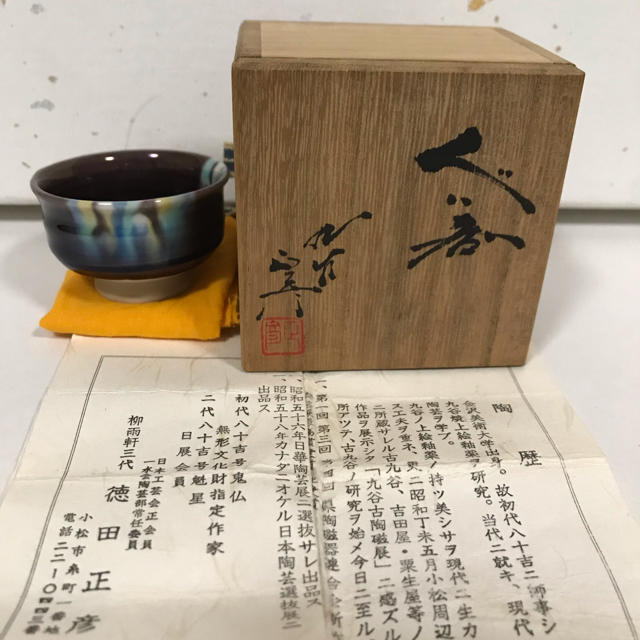 ぐい呑
陶歴
金沢美術大学出身。故初代八十吉ニ師事シ
九谷焼上絵釉薬ノ研究。当代ニ就キ、現代
陶芸ヲ学ブ。
九谷ノ上絵釉薬ノ持ツ美シサヲ現代ニ生カ
ス工夫ヲ重ネ、昭和丁未五月小松周辺
ニ所蔵サレル古九谷、吉田屋・粟生屋等ノ
作品ヲ展示シタ「九谷古陶磁展」ニ感ズル
所アツテ、古九谷ノ研究ヲ始メ今日ニ至ル
一、第一回第三回
県陶磁器連合
一、昭和五十六年日華陶芸展ニ選抜サレ出品ス
一、昭和五十八年カナダニオケル日本陶芸選抜展ニ
出品ス
初代八十吉号鬼仏
無形文化財指定作家
二代八十吉号魁星
日展会員
日本工芸会正会員
一水会陶芸部常任委員
柳雨軒三代 徳田正彦
小松市糸町一番地
電話二二-〇四四三番